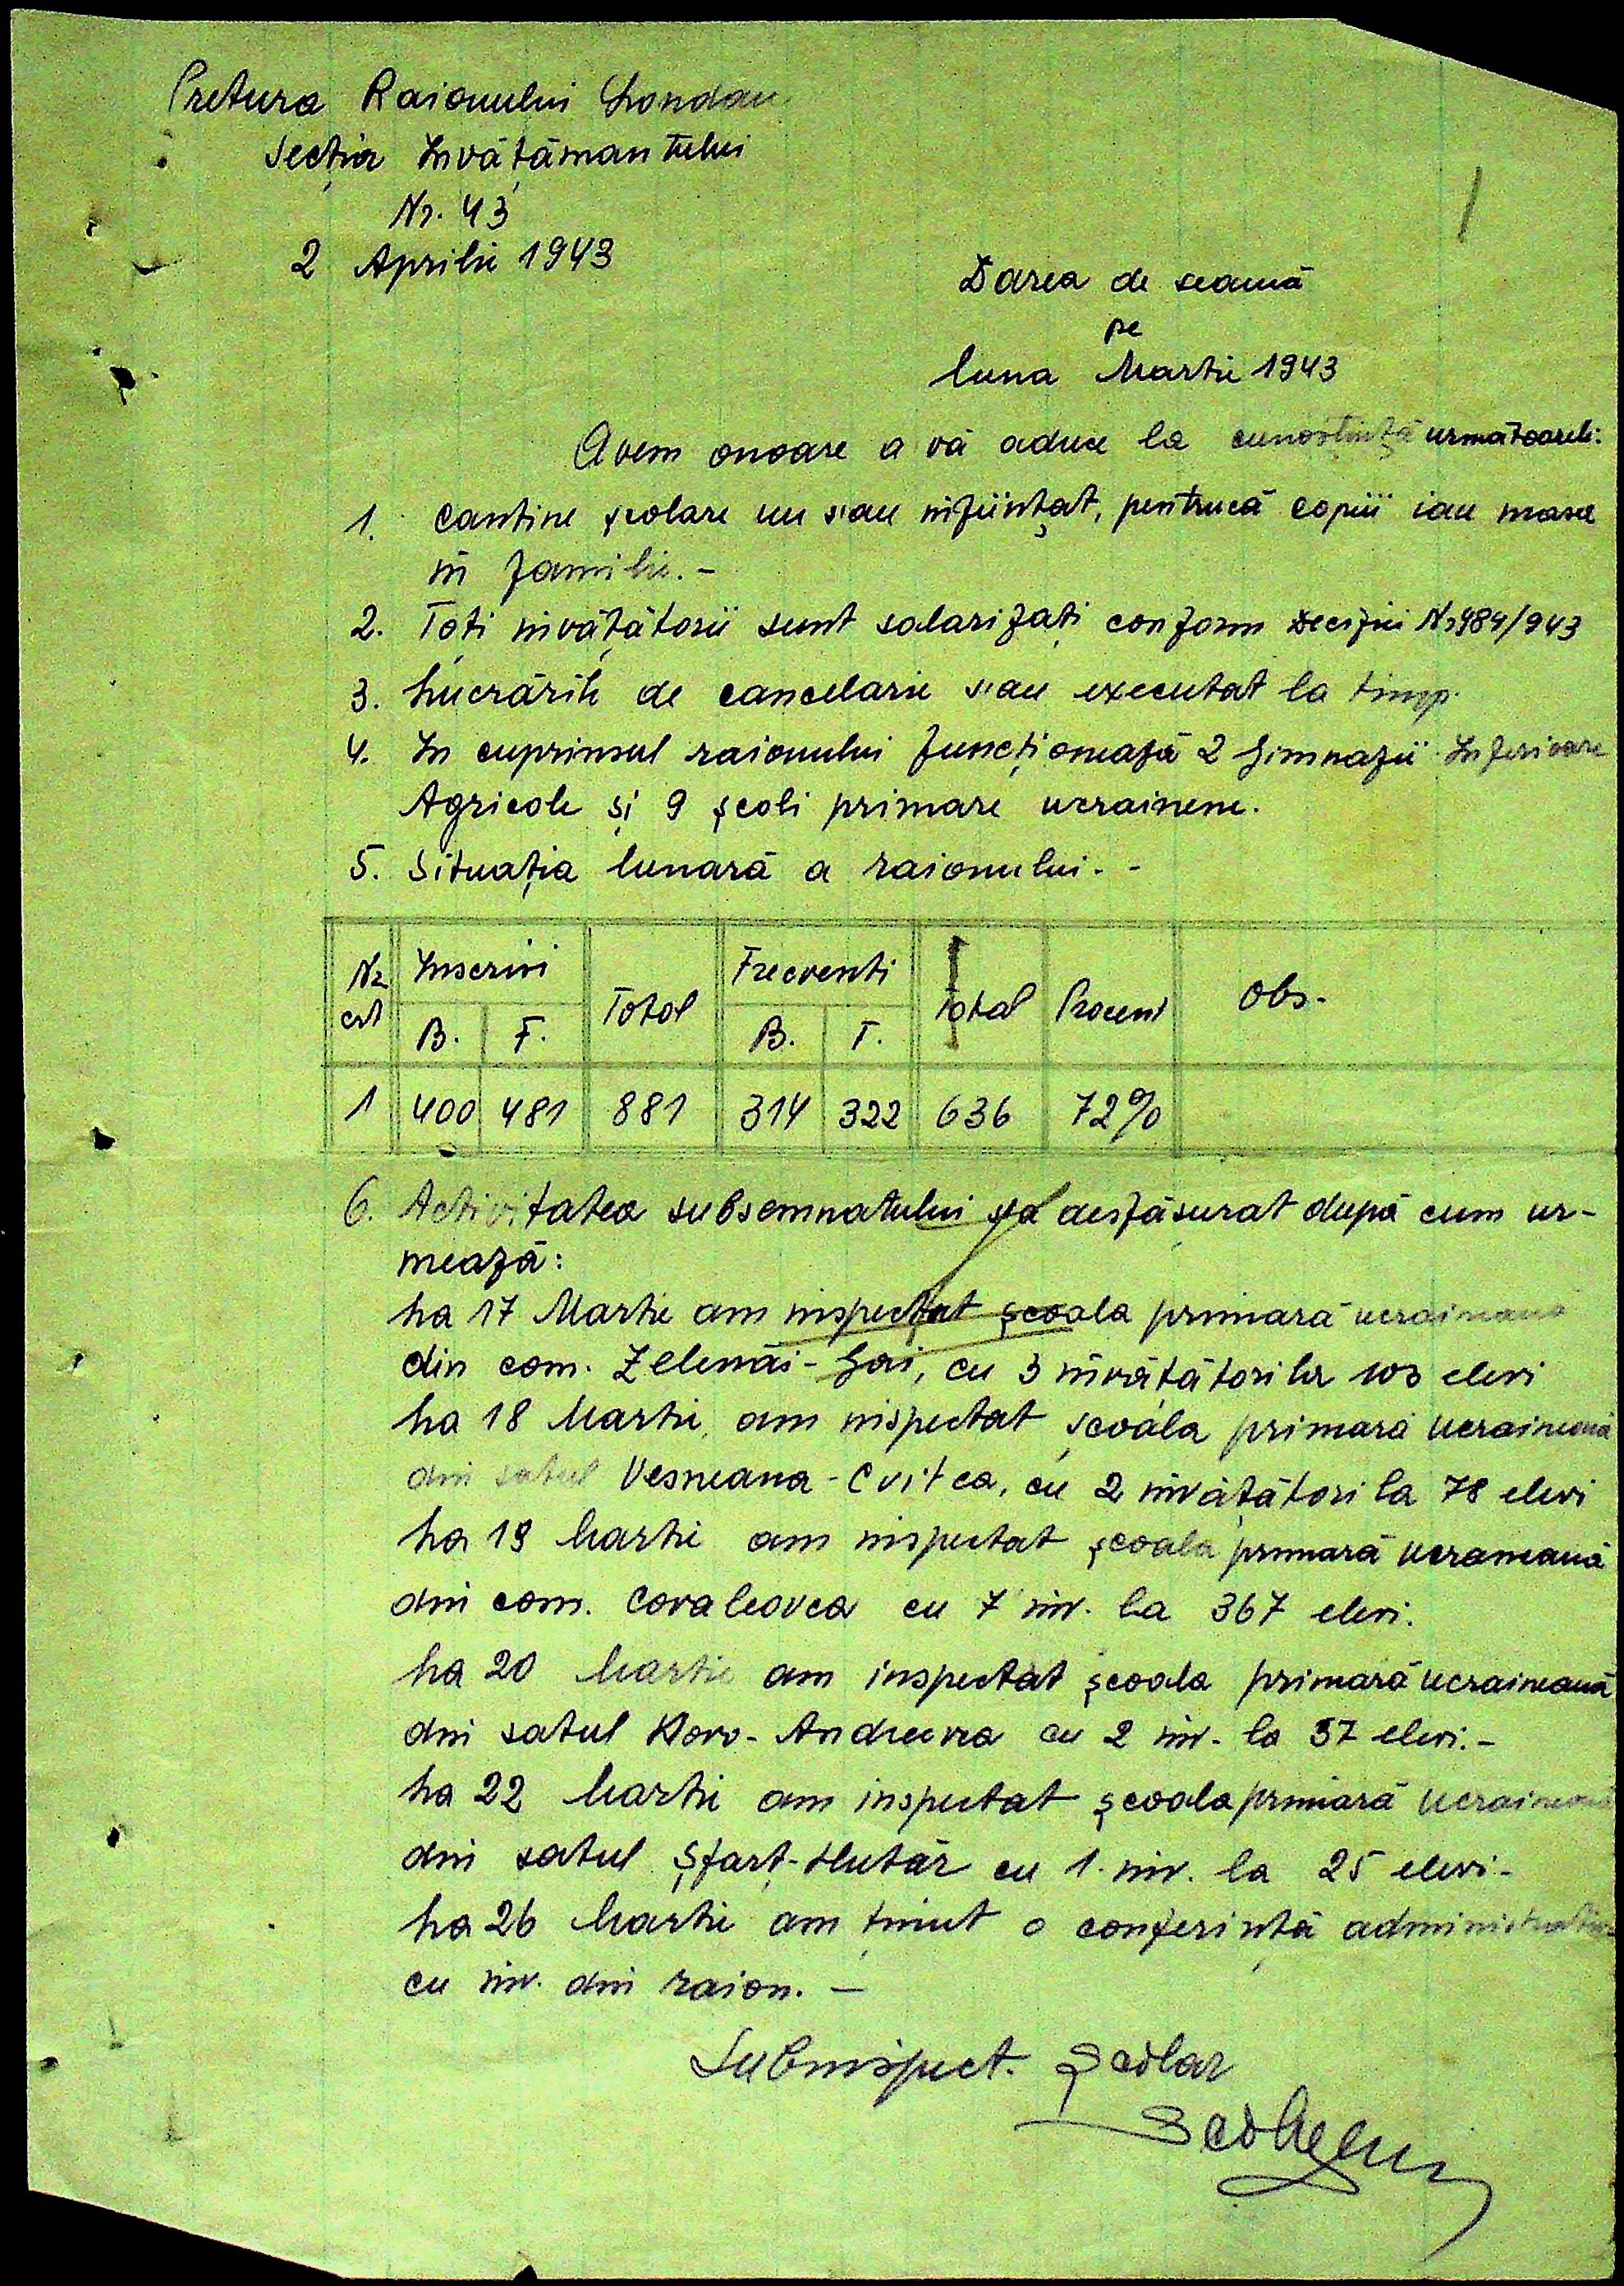 Pretura Raionului Landau
Secția Învățămantului
Nr. 43
2 Aprilie 1943
Darea de seamă
pe
luna Martie 1943
Avem onoare a vă aduce la cunoștință următoarele:
1. Cantine școlare nu s'au înființat, pentrucă copiii iau masa
în familie.-
2. Toți învățătorii sunt salarizați conform Deciziei Nr 984/943
3. Lucrările de cancelarie s'au executat la timp.
4. In cuprinsul raionului funcționează 2 Gimnazii Inferioare
Agricole și 9 școli primare ucrainene.
5. Situația lunară a raionului.-
Nr. crt Inscriși Total Frecvenți Total Procent Obs.
B. F. B. F.
1 400 481 881 314 322 636 72%
6. Activitatea subsemnatului s'a desfășurat după cum ur-
mează:
La 17 Martie am inspectat școala primară ucraineană
din com. Zelenăi-Gai, cu 3 învățători la 103 elevi
La 18 Martie am inspectat școala primară ucraineană
din satul Vesneana-Cvitca, cu 2 învățători la 78 elevi
La 19 Martie am inspectat școala primară ucraineană
din com. Covaleovca cu 7 înv. la 367 elevi.
La 20 Martie am inspectat școala primară ucraineană
din satul Novo-Andreevca cu 2 înv. la 37 elevi.-
La 22 Martie am inspectat școala primară ucraineană
din satul Șfarț-Hutăr cu 1 înv. la 25 elevi-
La 26 Martie am ținut o conferință administrativă
cu înv. din raion.-
Subinspect. Școlar